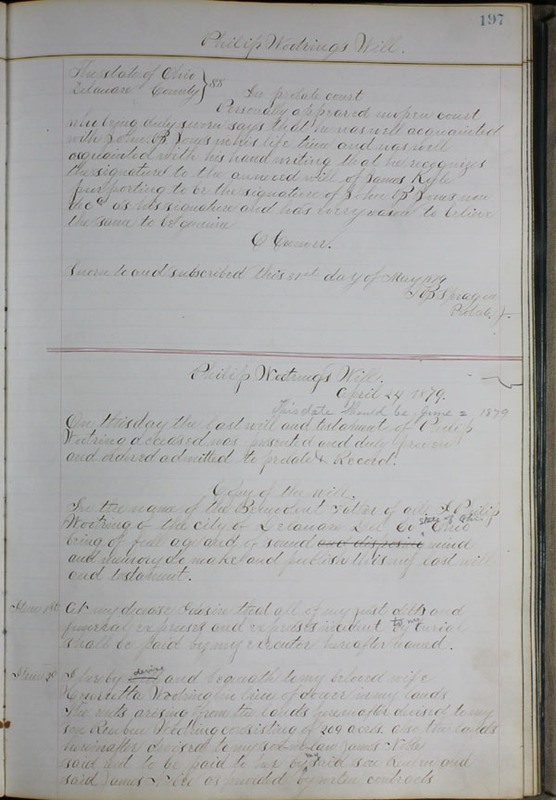 197
Philip Wootrings Will.
The state of Ohio
Delaware County } ss
In probate court
Personally appeared in open court
who being duly sworn says that he was well acquainted
with John P Jones in his life time and was well
acquainted with his hand writing that he recognizes
the signature to the annexed will of James Kyle
purporting to be the signature of John P Jones now
decd as his signature and has every reason to believe
the same to be genuine
C
Sworn to and subscribed this 31st day of May 1879
Sprague
Probate J.
Philip Wootrings Will.
April 24 1879.
This date should be June 2 1879
On this day the last will and testament of Philip
Wootring deceased was presented and duly proven
and ordered admitted to probate & Record.
Copy of the will.
In the name of the Benevolent Father of all. I Philip
Wootring of the city of Delaware Del Co State of Ohio Ohio
being of full age and of sound and disposing mind
and memory do make and publish this my last will
and testament.
Item 1st At my decease I desire that all of my just debts and
funeral expenses and expenses incident to my burial
shall be paid by my executor hereafter named.
Item 2d I herby devise and bequeath to my beloved wife
Henrietta Wootring in lieu of dower in my lands
The rents arising from the lands hereinafter devised to my
son Reuben Wootring consisting of 209 acres. also the lands
hereinafter devised to my son in law James
said rent to be paid to her by my said son Reuben and
said James as provided by written contracts